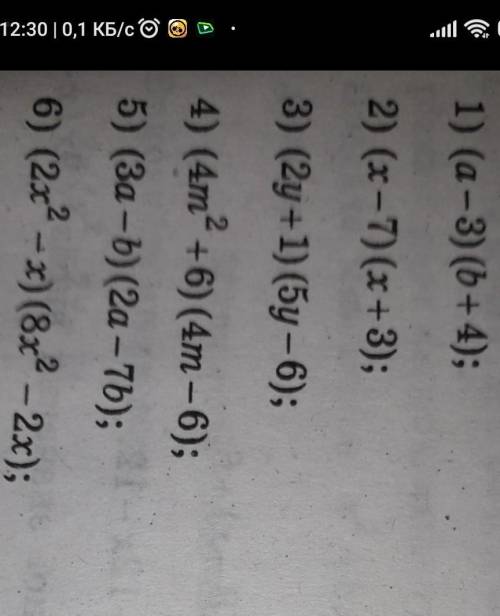 12:30 | 0,1 КБ/с
1) (a – 3)(b + 4);
2) (x – 7)(x + 3);
3) (2y + 1)(5y – 6);
4) (4m² + 6)(4m – 6);
5) (3a – b)(2a – 7b);
6) (2x² – x)(8x² – 2x);